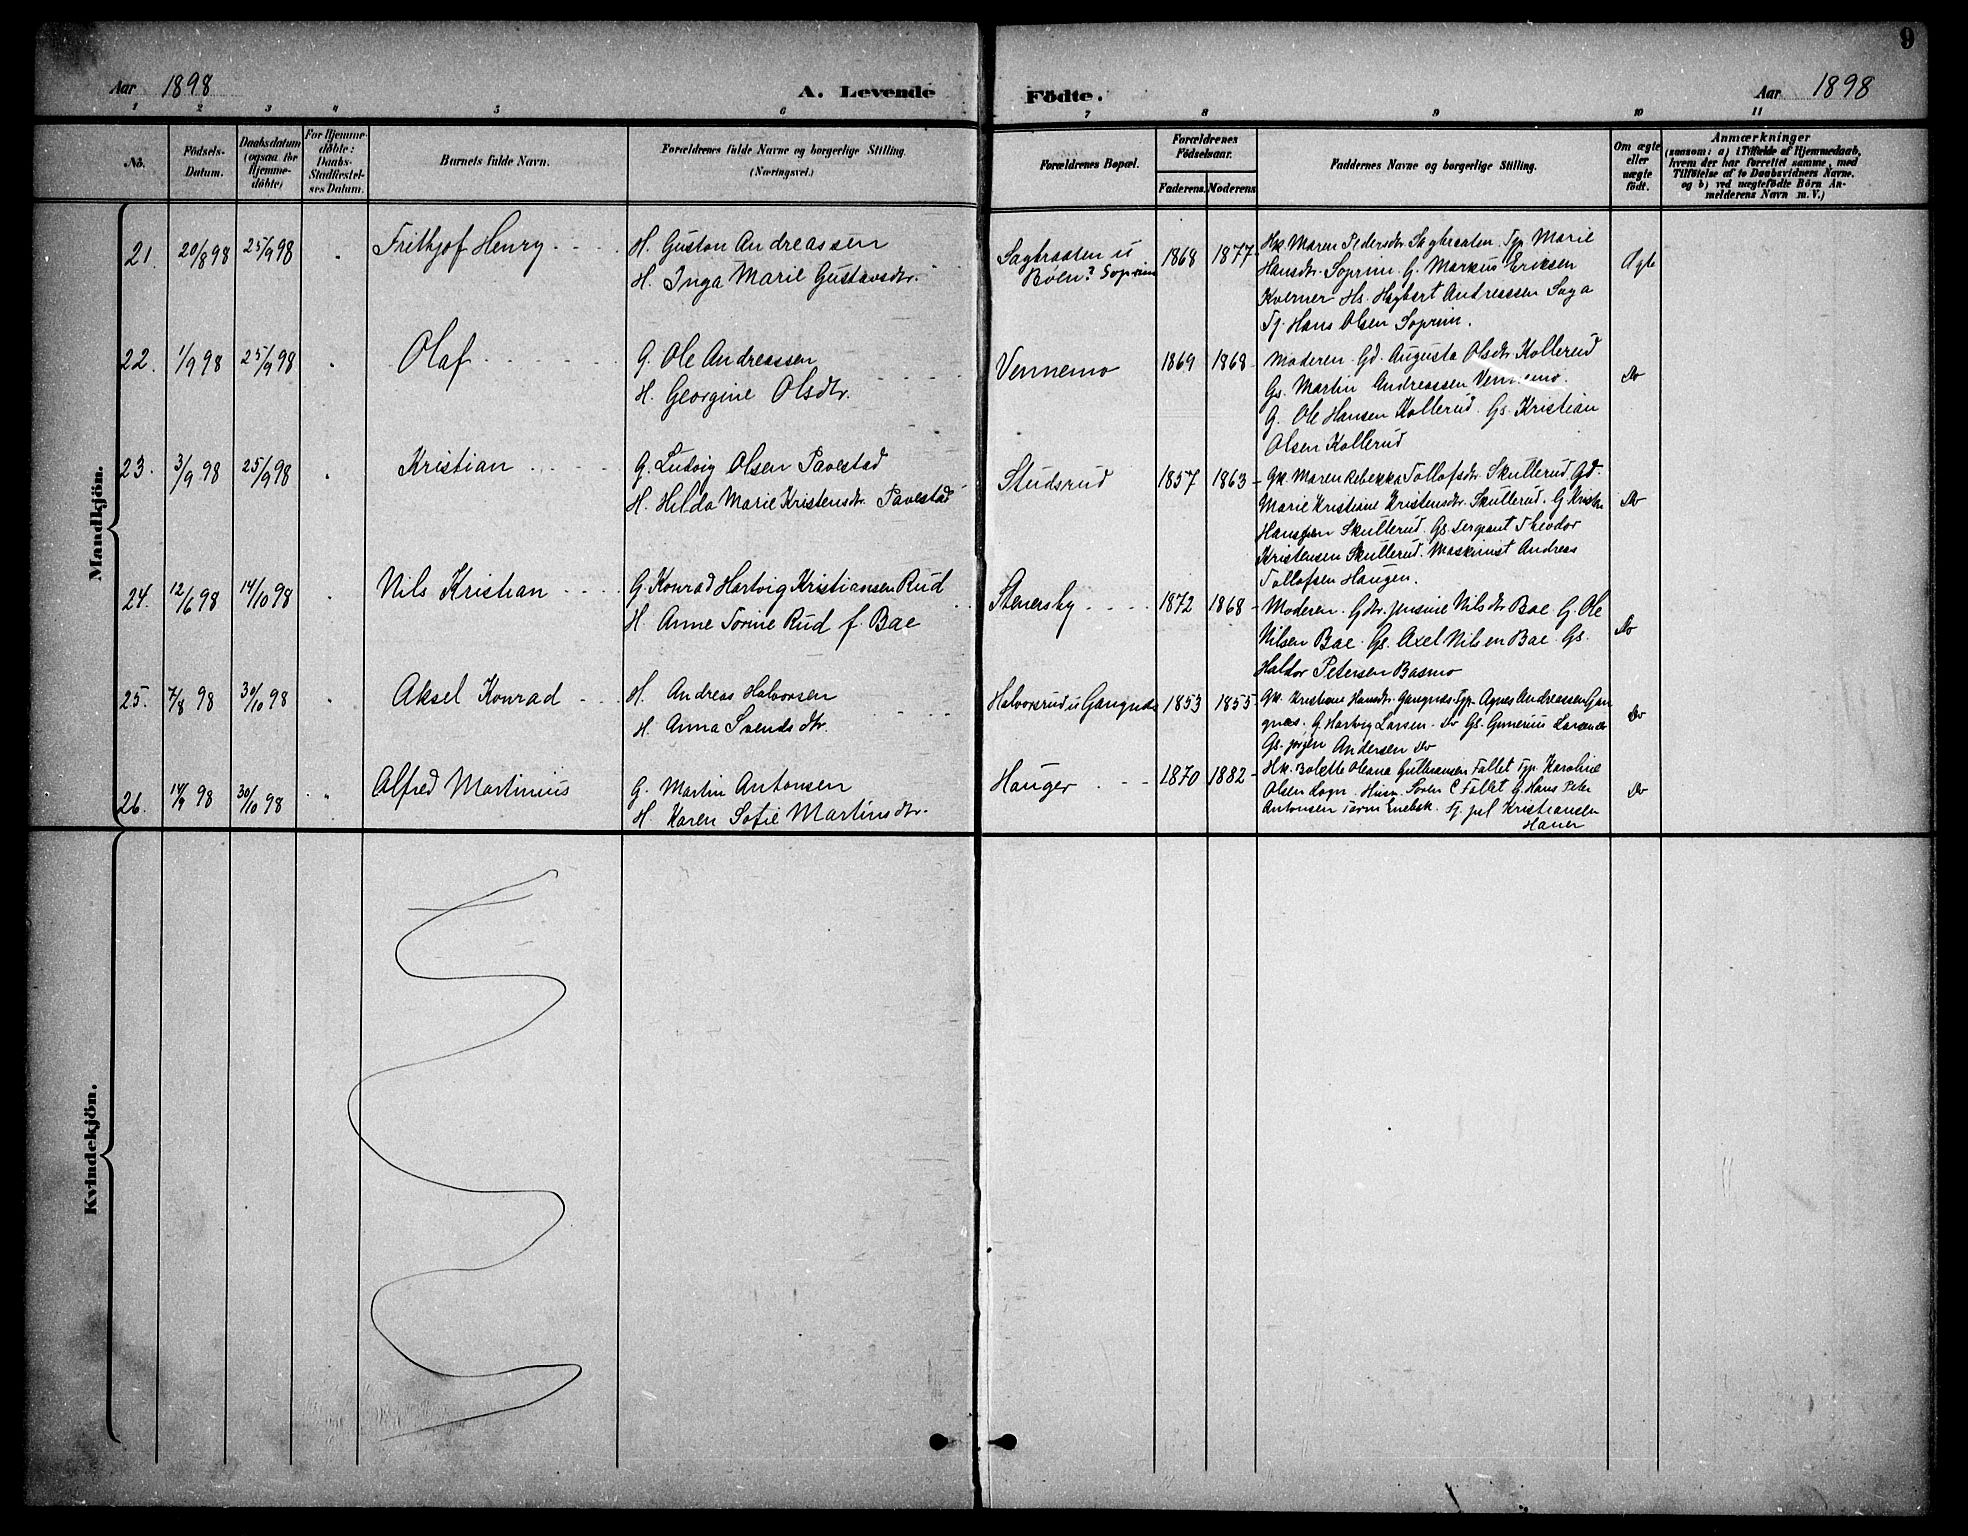 9
Aar 1898 A. Levende Födte. Aar 1898
1 2 3 4 5 6 7 8 9 10 11
No.
Födsels-
Datum.
Daabsdatum
(ogsaa for
Hjemme-
döbte)
For Hjemme-
döbte:
Daabs-
Stadfæstel-
ses Datum.
Barnets fulde Navn.
Forældrenes fulde Navne og borgerlige Stilling.
(Næringsvei.)
Forældrenes Bopæl.
Forældrenes
Födselsaar.
Faderens. Moderens.
Faddernes Navne og borgerlige Stilling.
Om ægte
eller
uægte
födt.
Anmærkninger
(saasom: a) i Tilfælde af Hjemmedaab,
hvem der har forrettet samme, med
Tilföielse af to Daabsvidners Navne,
og b) ved uægtefödte Börn An-
melderens Navn m. V.)
Mandkjön.
21. 20/8 98 25/9 98 " Frithjof Henry
H. Gustav Andreassen
H. Inga Marie Gustavsdtr.
Sagbraaten u
Böen? Soprim
1868 1877
Hk. Maren Pedersdtr. Sagbraaten. Tp. Marie
Hansdtr. Soprim. G. Markus Eriksen
Kverner Hs. Hagbart Andreassen Saga
Tj. Hans Olsen Soprim.
Ægte
22. 1/9 98 25/9 98 " Olaf
G. Ole Andreassen
H. Georgine Olsdtr.
Vennemo
1869 1868
Moderen. Gd. Augusta Olsdtr. Kollerud
Gs. Martin Andreassen Vennemo.
G. Ole Hansen Kollerud. Gs. Kristian
Olsen Kollerud
Do
23. 3/9 98 25/9 98 " Kristian
G. Ludvig Olsen Tavestad
H. Hilda Marie Kristensdtr. Tavestad
Studsrud
1857 1863
Gk. Maren Rebekka Tollofsdtr. Skullerud Gd.
Marie Kristiane Kristensdtr. Skullerud. G
Hansen Skullerud. Gs Sergeant Theodor
Kristensen Skullerud. Maskinist Andreas
Tollofsen Haugen.
Do
24. 12/6 98 14/10 98 " Nils Kristian
G. Konrad Hartvig Kristiansen Rud
H. Anne Torine Rud f. Bae
Stenersby
1872 1868
Moderen. Gdtr. Jensine Nilsdtr Bae G. Ole
Nilsen Bae. Gs. Axel Nilsen Bae. Gs.
Haldor Petersen Basmo
Do
25. 7/8 98 30/10 98 " Aksel Konrad
H. Andreas Halvorsen
H. Anna Svendsdtr.
Halvorsrud u Gangnæs
1853 1855
Gk. Kristiane Hansdtr. Gangnæs. Tp. Agnes Andreassen Gan
gnæs. G. Hartvig Larsen. Do Gs. Gunerius Larsen do
Gs. Jörgen Andersen Do
Do
26. 14/9 98 30/10 98 " Alfred Martinius
G. Martin Antonsen
H Karen Sofie Martinsdtr.
Hauger
1870 1882
Hk. Bolette Oleana Gulbransen Fallet Tp. Karoline
Olsen Sogn. Husm. Soren C Fallet G. Hans Peter
Antonsen Enebak. Tj. Kristiansen
Hauer
Do
Kvindekjön.